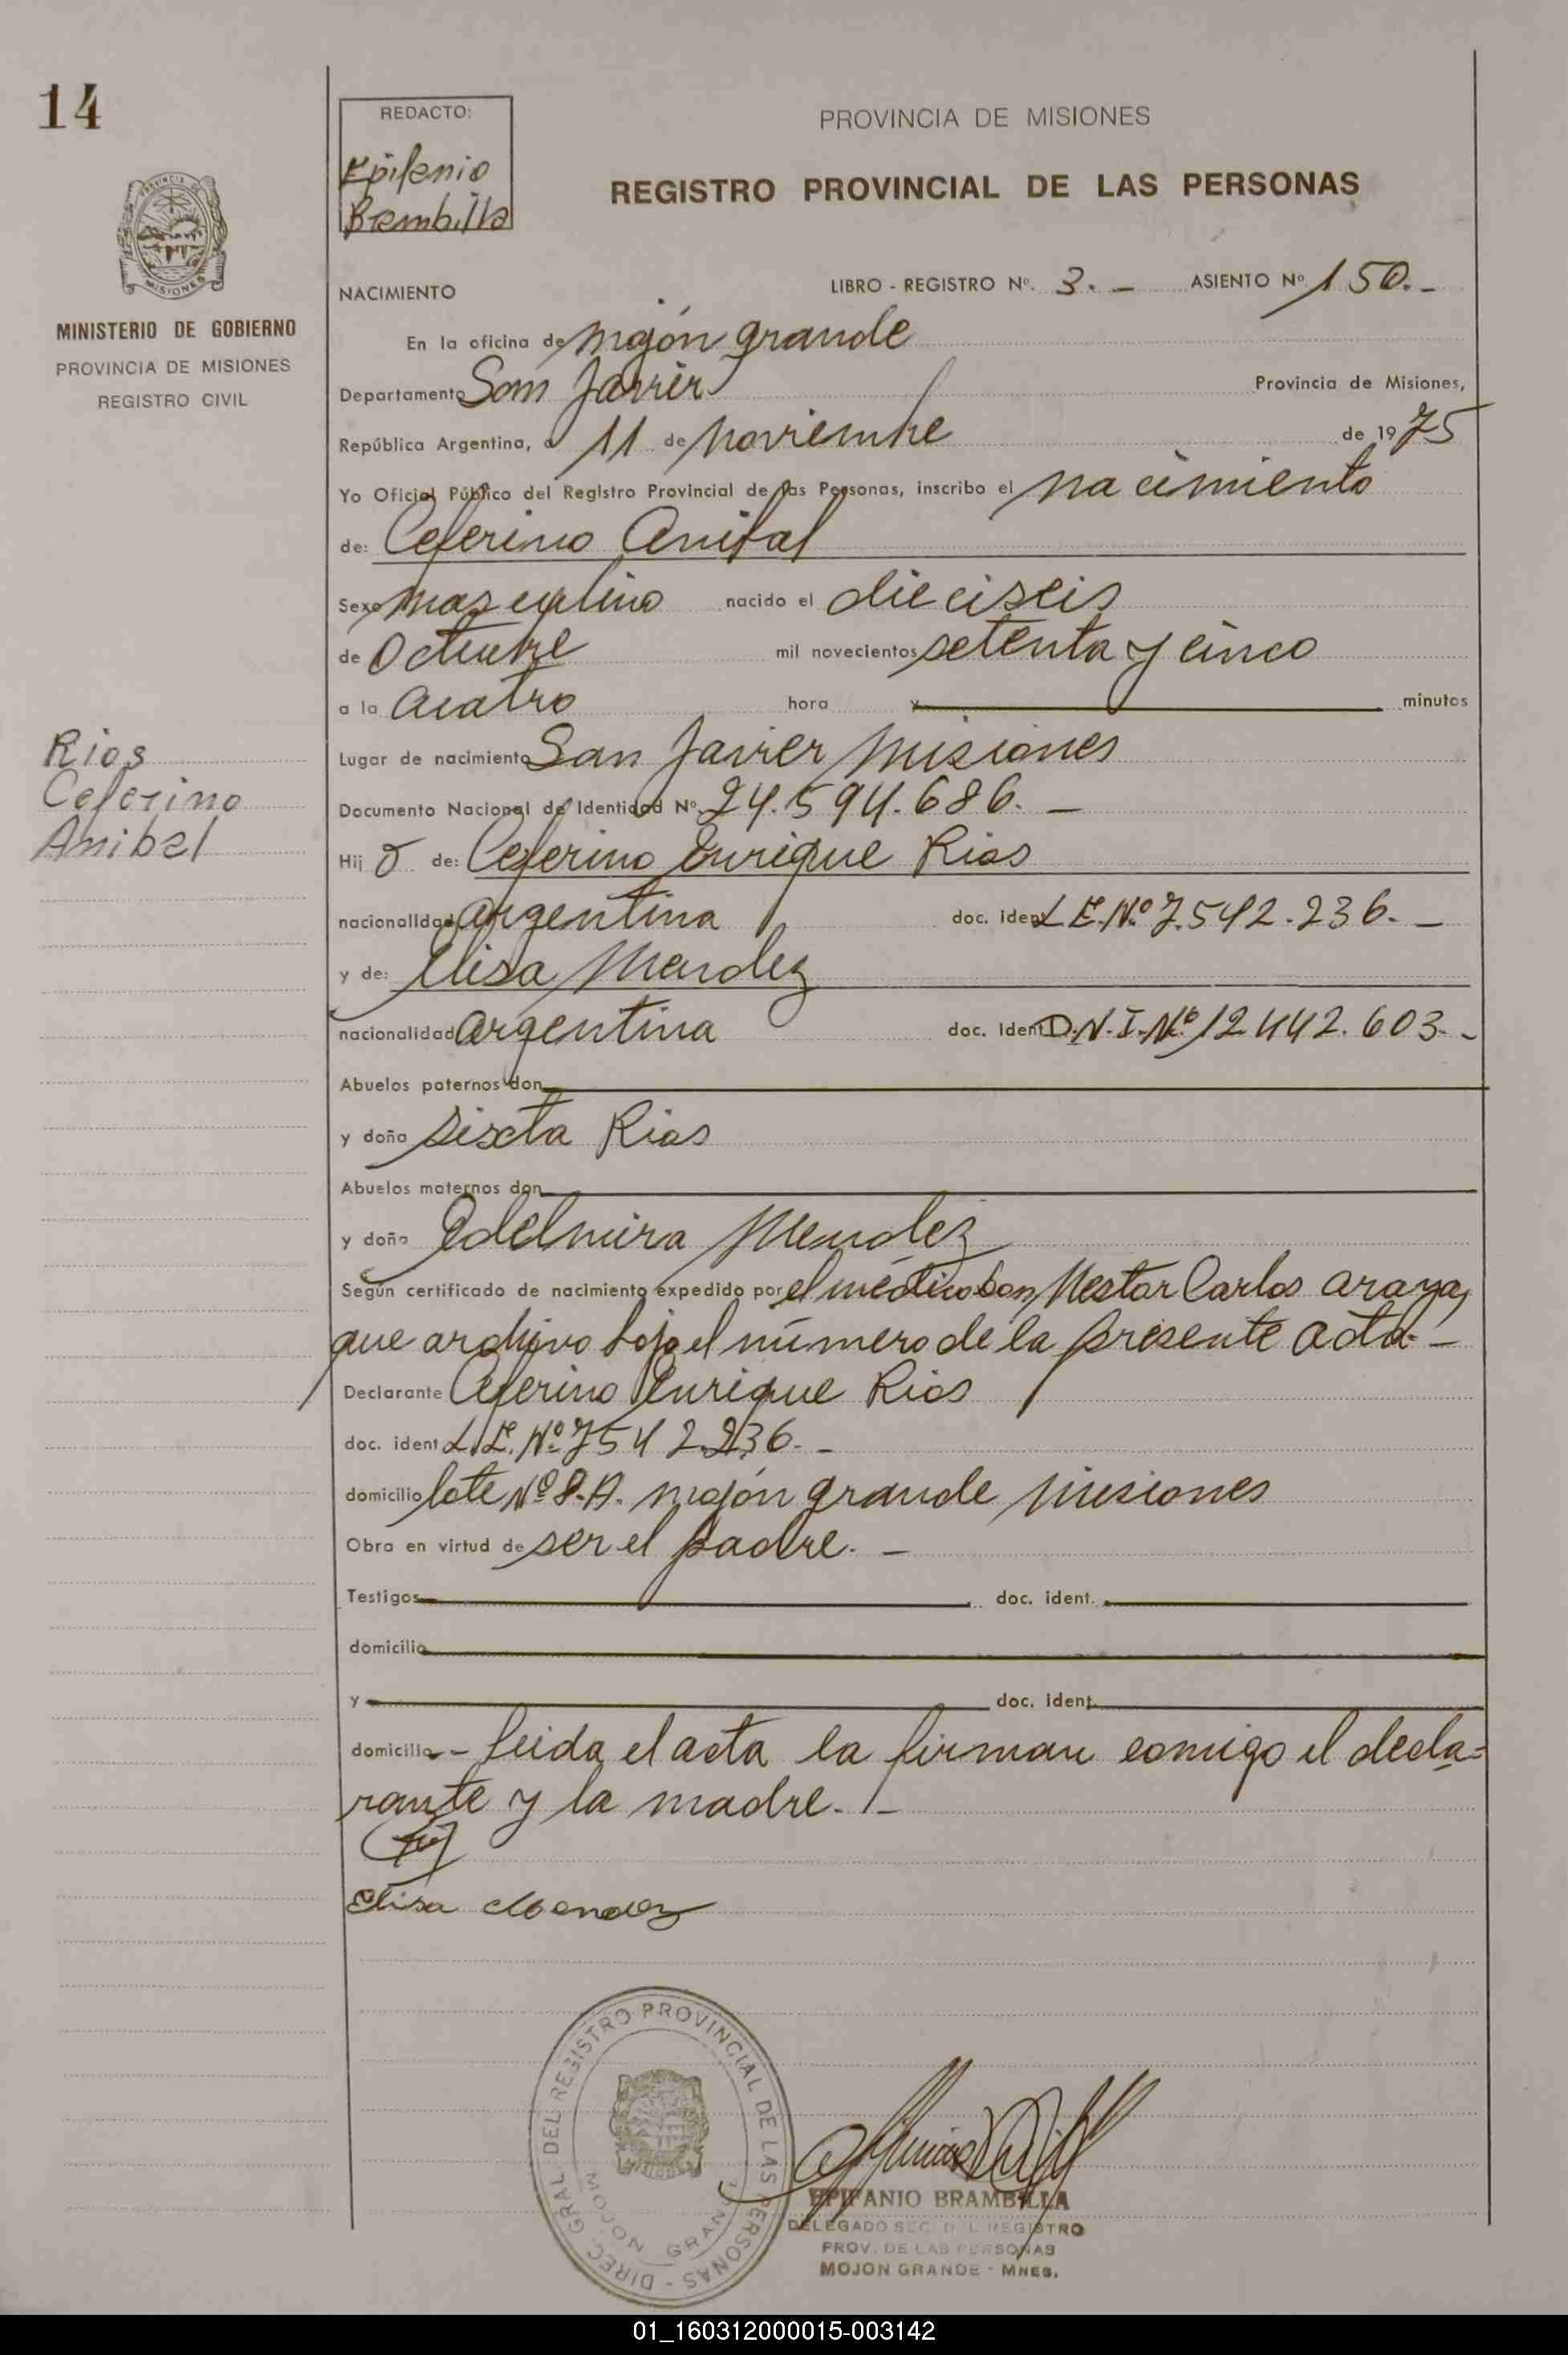 14
REDACTO:
Epifanio
Brambilla
PROVINCIA DE MISIONES
REGISTRO PROVINCIAL DE LAS PERSONAS
PROVINCIA DE
MISIONES
MINISTERIO DE GOBIERNO
PROVINCIA DE MISIONES
REGISTRO CIVIL
NACIMIENTO LIBRO - REGISTRO Nº. 3. - ASIENTO Nº 150. -
En la oficina de mojón grande
Departamento San Javier Provincia de Misiones,
República Argentina, a 11 de noviembre de 1975
Yo Oficial Público del Registro Provincial de las Personas, inscribo el nacimiento
de: Ceferino Anibal
Sexo masculino nacido el dieciseis
de Octubre mil novecientos setenta y cinco
a la cuatro hora minutos
Lugar de nacimiento San Javier Misiones
Documento Nacional de Identidad Nº. 24.594.686. -
Rios
Ceferino
Anibal
Hij o de: Ceferino Enrique Rios
nacionalidad argentina doc. ident L.E.Nº 7.542.236. -
y de: Elisa Mendez
nacionalidad argentina doc. ident D.N.I.Nº 12.442.603. -
Abuelos paternos don
y doña Sixta Rios
Abuelos maternos don
y doña Edelmira Mendez
Según certificado de nacimiento expedido por el médico Don Nestor Carlos Araya,
que archivo bajo el número de la presente acta. -
Declarante Ceferino Enrique Rios
doc. ident L.E. Nº 7542.236. -
domicilio lote Nº 8.A. mojón grande Misiones
Obra en virtud de ser el padre. -
Testigos doc. ident.
domicilio
y doc. ident.
domicilio - leida el acta la firman comigo el decla=
rante y la madre. -
Elisa Mendez
DIREC. GRAL. DEL REGISTRO PROVINCIAL DE LAS PERSONAS -
MOJON GRANDE
EPIFANIO BRAMBILLA
DELEGADO SEC. DEL REGISTRO
PROV. DE LAS PERSONAS
MOJON GRANDE - MNES.
01_160312000015-003142